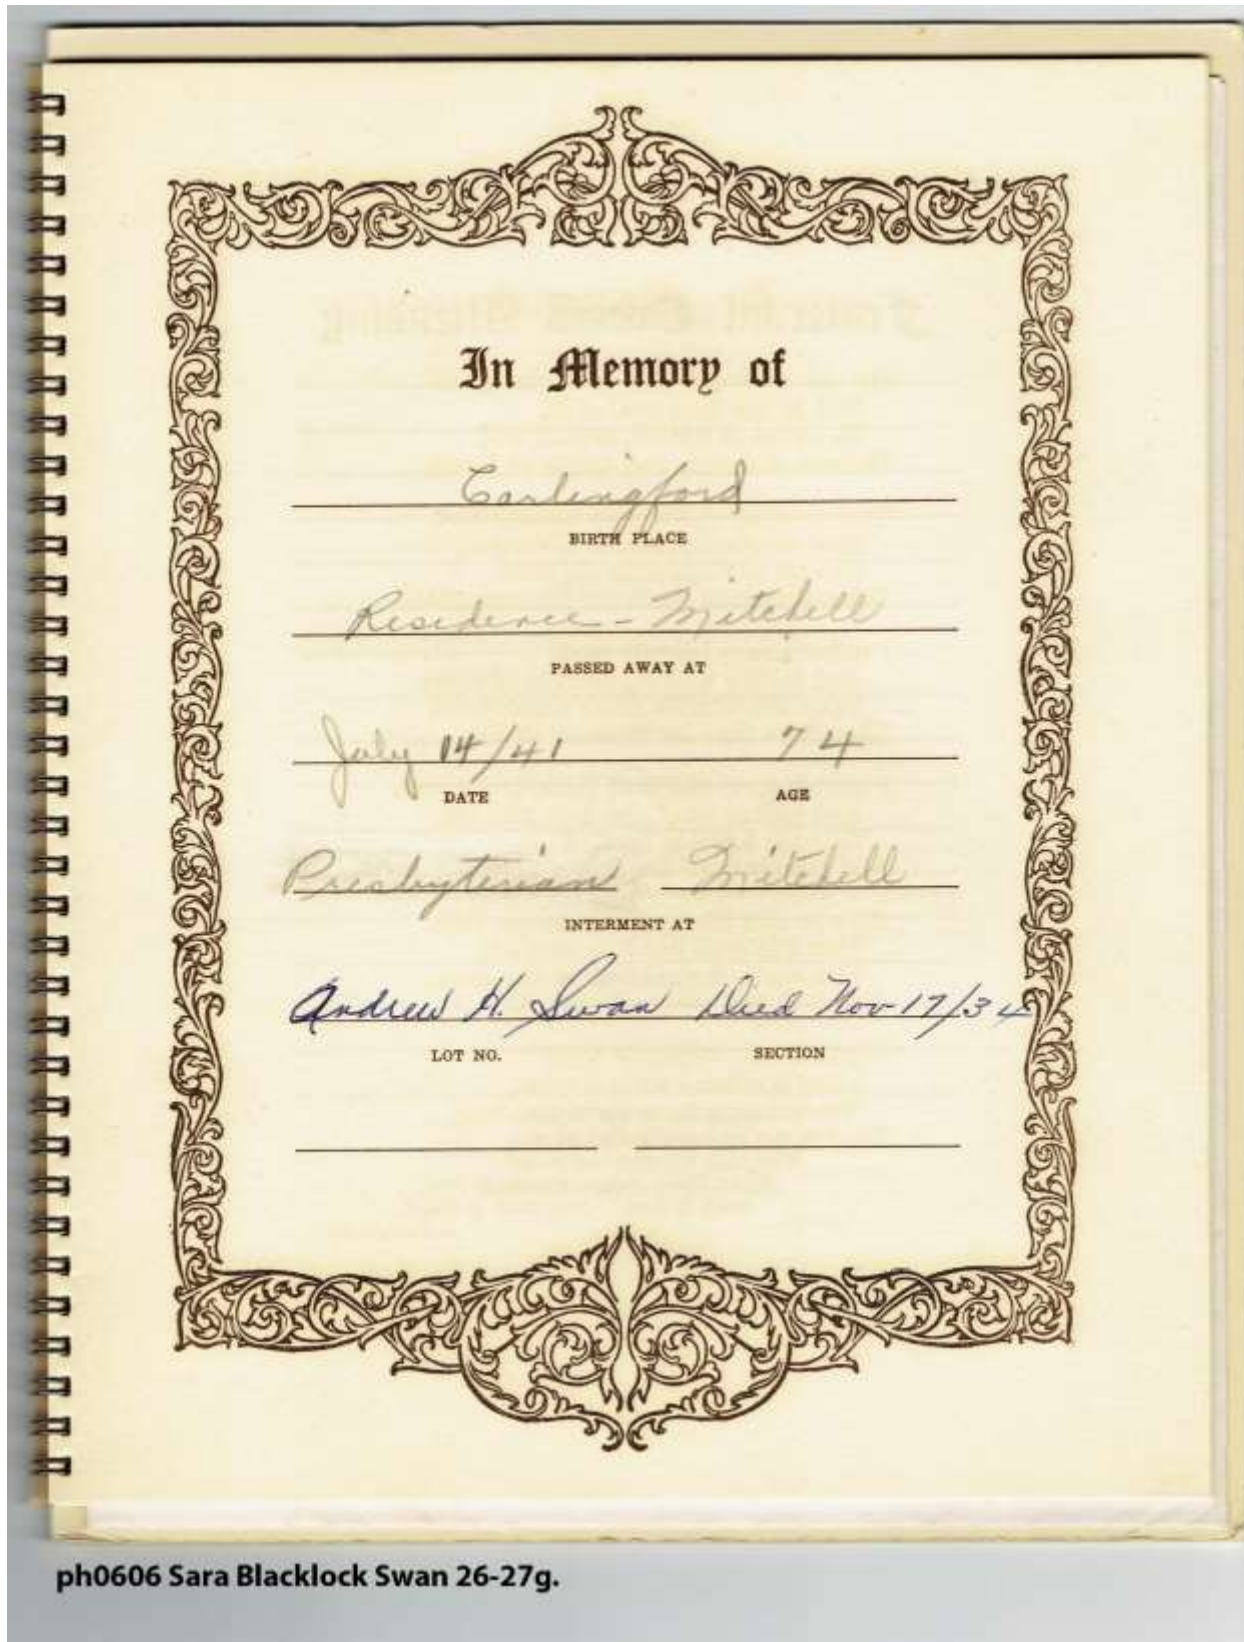 In Memory of
Carlingford
BIRTH PLACE
Residence - Mitchell
PASSED AWAY AT
July 14/41 74
DATE AGE
Presbyterian Mitchell
INTERMENT AT
Andrew H. Swan Died Nov 17/34
LOT NO. SECTION
ph0606 Sara Blacklock Swan 26-27g.